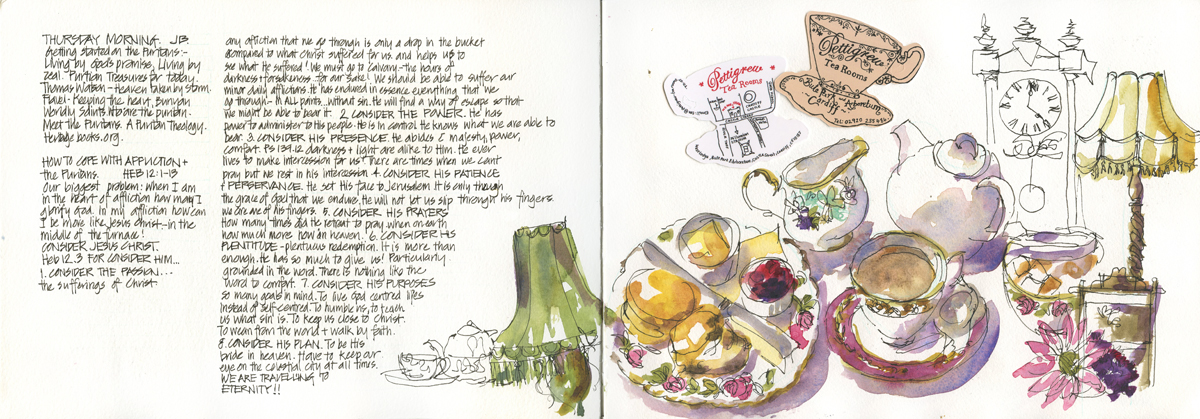 THURSDAY MORNING. J.B.
Getting started on the Puritans:-
Living by God's promise, Living by
zeal. Puritian Treasures for today.
Thomas Watson - Heaven taken by storm.
Flavel - Keeping the heart, Bunyan
Worldly Saints. Who are the puritan.
Meet the Puritans. A Puritan Theology.
Heritage books.org.
HOW TO COPE WITH AFFLICTION +
the Puritans. HEB 12:1-13
Our biggest problem: when I am
in the heart of affliction how may I
glorify God. In my affliction how can
I be more like Jesus Christ - in the
middle of the furnace!
CONSIDER JESUS CHRIST.
Heb 12.3 FOR CONSIDER HIM...
1. CONSIDER THE PASSION...
the sufferings of Christ
any afliction that we go through is only a drop in the bucket
compared to what Christ suffered for us and helps us to
see what He suffered! We must go to Calvary - the hours of
darkness + forsakeness for our sake! We should be able to suffer our
minor daily afflictions. He has endured in essence everything that we
go through - in ALL points... without sin. He will find a way of escape so that
we might be able to bear it. 2. CONSIDER THE POWER. He has
power to administer to His people. He is in control. He knows what we are able to
bear. 3. CONSIDER HIS PRESENCE. He abides & majesty, power,
comfort. PS 139.12 darkness + light are alike to Him. He ever
lives to make intercession for us! There are times when we cant
pray but we rest in his intercession 4. CONSIDER HIS PATIENCE
+ PERSERVANCE. He set His face to Jerusalem It is only though
the grace of God that we endure. He will not let us slip through his fingers
we are one of his fingers. 5. CONSIDER HIS PRAYERS
How many times did He retreat to pray when on earth
how much more now in heaven. 6. CONSIDER HIS
PLENTITUDE - plentuous redemption. It is more than
enough. He has so much to give us! Particularly
grounded in the word. There is nothing like the
Word to comfort. 7. CONSIDER HIS PURPOSES
so many goals in mind. To live God centred lifes
instead of self-centred. To humble us, to teach
us what sin is. To keep us close to Christ.
To wean from the world + walk by faith.
8. CONSIDER HIS PLAN. To be His
bride in heaven. Have to keep our
eye on the celestial city at all times.
WE ARE TRAVELLING TO
ETERNITY!!
Pettigrew
Tea Rooms
Pettigrew
Tea Rooms
Bute Park Arboretum
Cardiff
Tel: 02920 235486